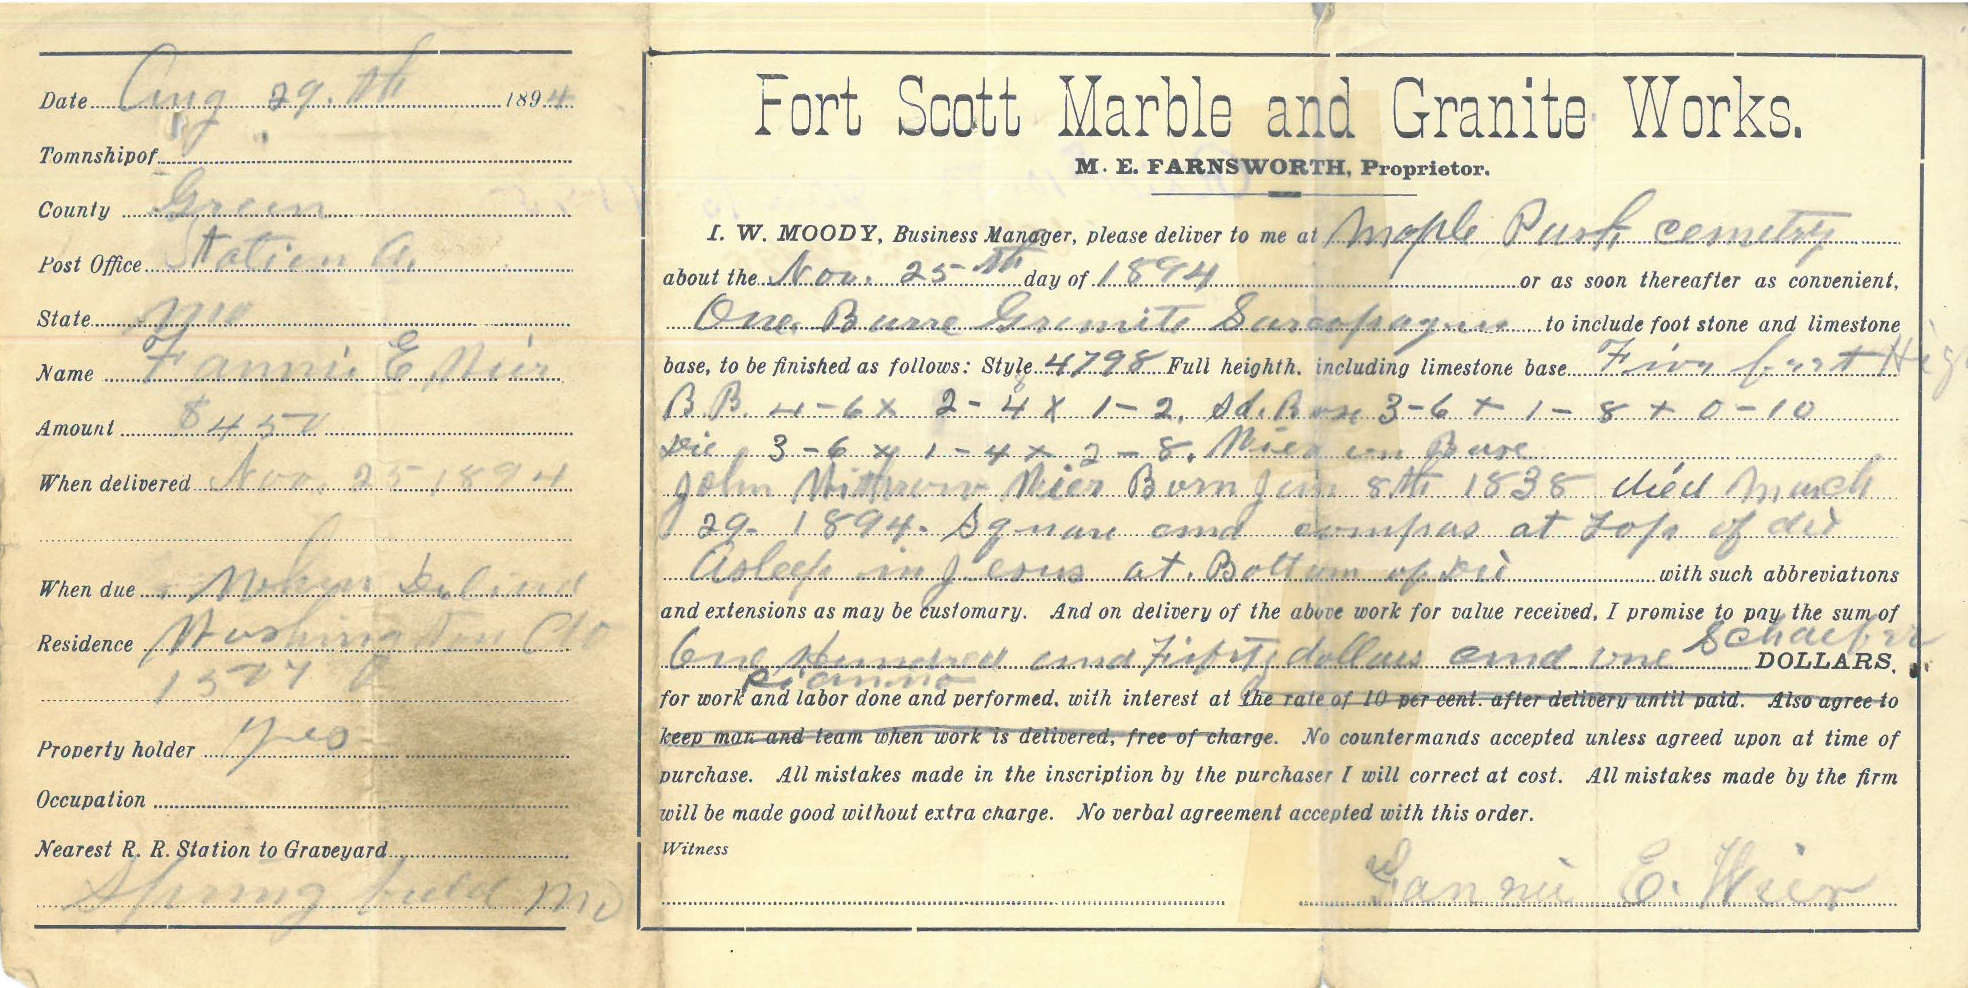 Date Aug 29.th 1894
Tomnship of
County Green
Post Office Station A.
State Mo
Name Fannie E Wier
Amount $450
When delivered Nov. 25 1894
When due When Delived
Residence Washington
1577
Property holder yes
Occupation
Nearest R. R. Station to Graveyard
Springfield Mo
Fort Scott Marble and Granite Works.
M. E. FARNSWORTH, Proprietor.
I. W. MOODY, Business Manager, please deliver to me at Maple Park cemetry
about the Nov. 25th day of 1894 or as soon thereafter as convenient,
One Barre Granite Sarcopagus to include foot stone and limestone
base, to be finished as follows: Style 4798 Full heighth, including limestone base Five feet High
B B. 4-6 x 2-4 x 1-2. Sd. Base 3-6 + 1-8 + 0-10
Die 3-6 x 1-4 x 2-8. Wier on Base
John Withrow Wier Born Jan 8th 1838 died March
29. 1894. Square and compas at top of die
Asleep in Jesus at. Bottom of Die with such abbreviations
and extensions as may be customary. And on delivery of the above work for value received, I promise to pay the sum of
One Hundred and Fifty dollars and one Schaefer DOLLARS,
pianno
for work and labor done and performed, with interest at the rate of 10 per cent. after delivery until paid. Also agree to
keep man and team when work is delivered, free of charge. No countermands accepted unless agreed upon at time of
purchase. All mistakes made in the inscription by the purchaser I will correct at cost. All mistakes made by the firm
will be made good without extra charge. No verbal agreement accepted with this order.
Witness
Fannie E. Wier